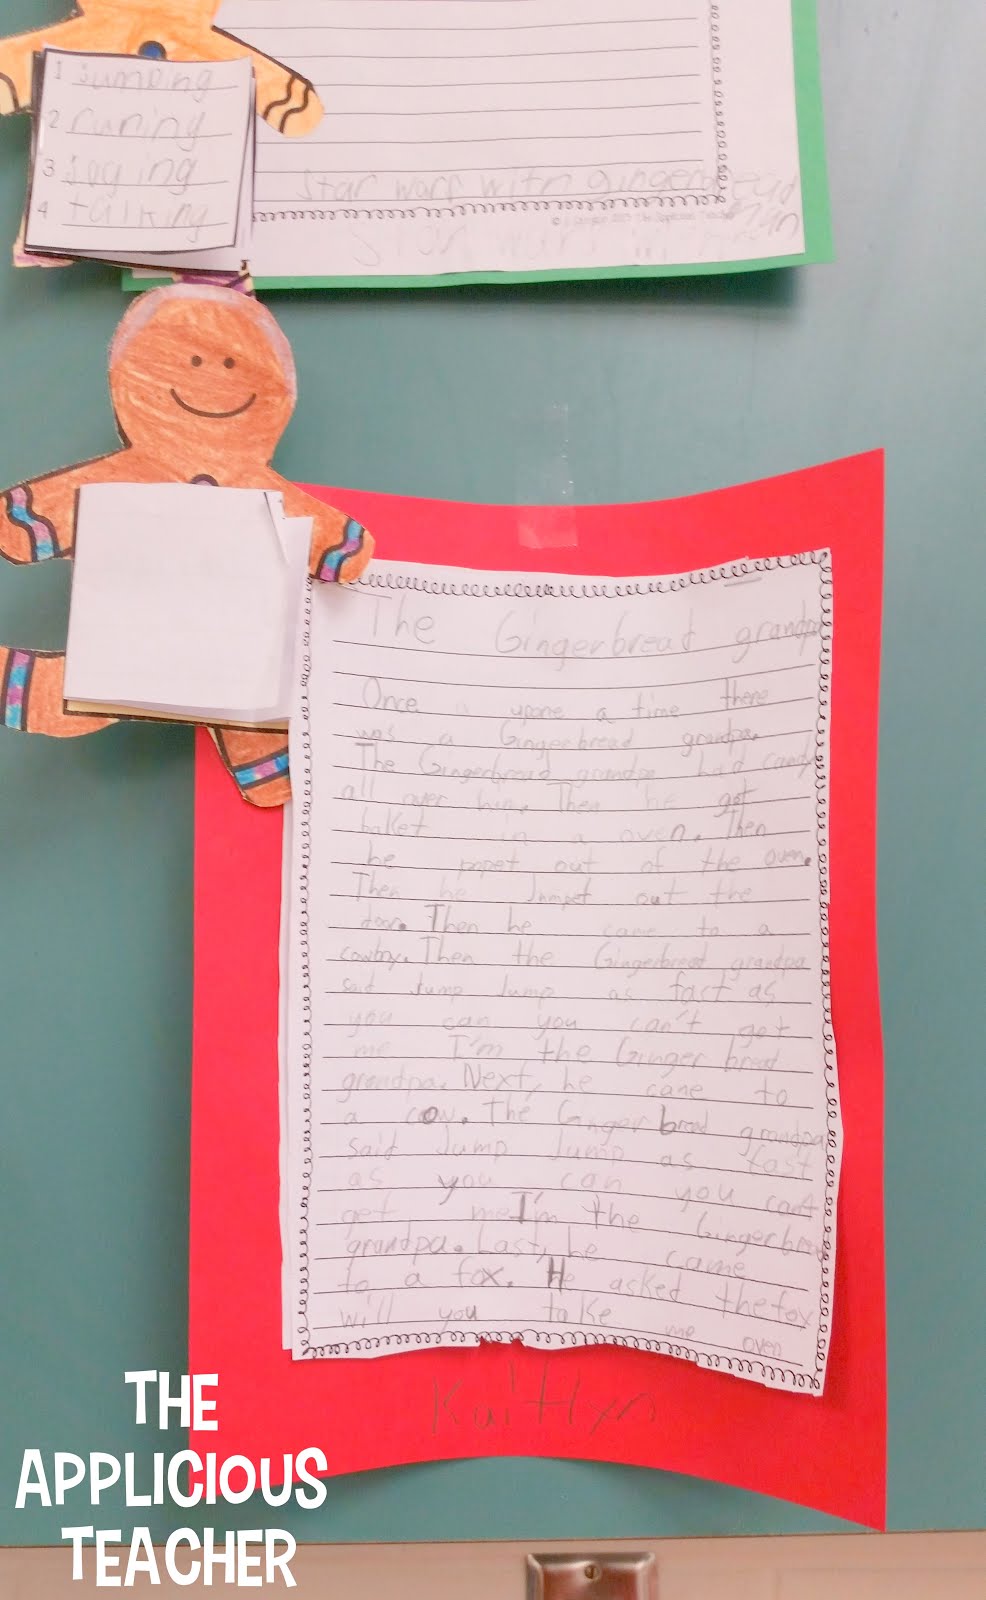 1 Jumping
2 runing
3 joging
4 talking
Star wars with gingerbread
man
The Gingerbread grandpa
Once upone a time there
was a Gingerbread grandpa.
The Gingerbread grandpa had candy
all over him. Then he got
baket in a oven. Then
he popet out of the oven.
Then he Jumpet out the
door. Then he came to a
cowboy. Then the Gingerbread grandpa
said Jump Jump as fast as
you can you can't get
me I'm the Ginger bread
grandpa. Next, he came to
a cow. The Gingerbread grandpa
said Jump Jump as fast
as you can you can't
get me I'm the Gingerbread
grandpa. Last, he came
to a fox. He asked the fox
will you take me oven
Kaitlyn
THE
APPLICIOUS
TEACHER